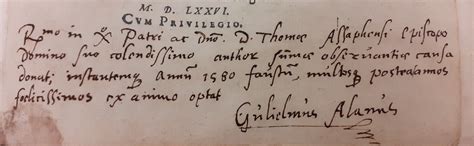 M. D. LXXVI.
CVM PRIVILEGIO.
Rmo in Xo Patri ac Dno. D. Thomæ Assaphensi Episcopo
Domino suo colendissimo author summæ observantiæ causa
donat, instantemq Annū 1580 faustū, multosq postea annos
fœlicissimos ex animo optat
Gulielmus Alanus